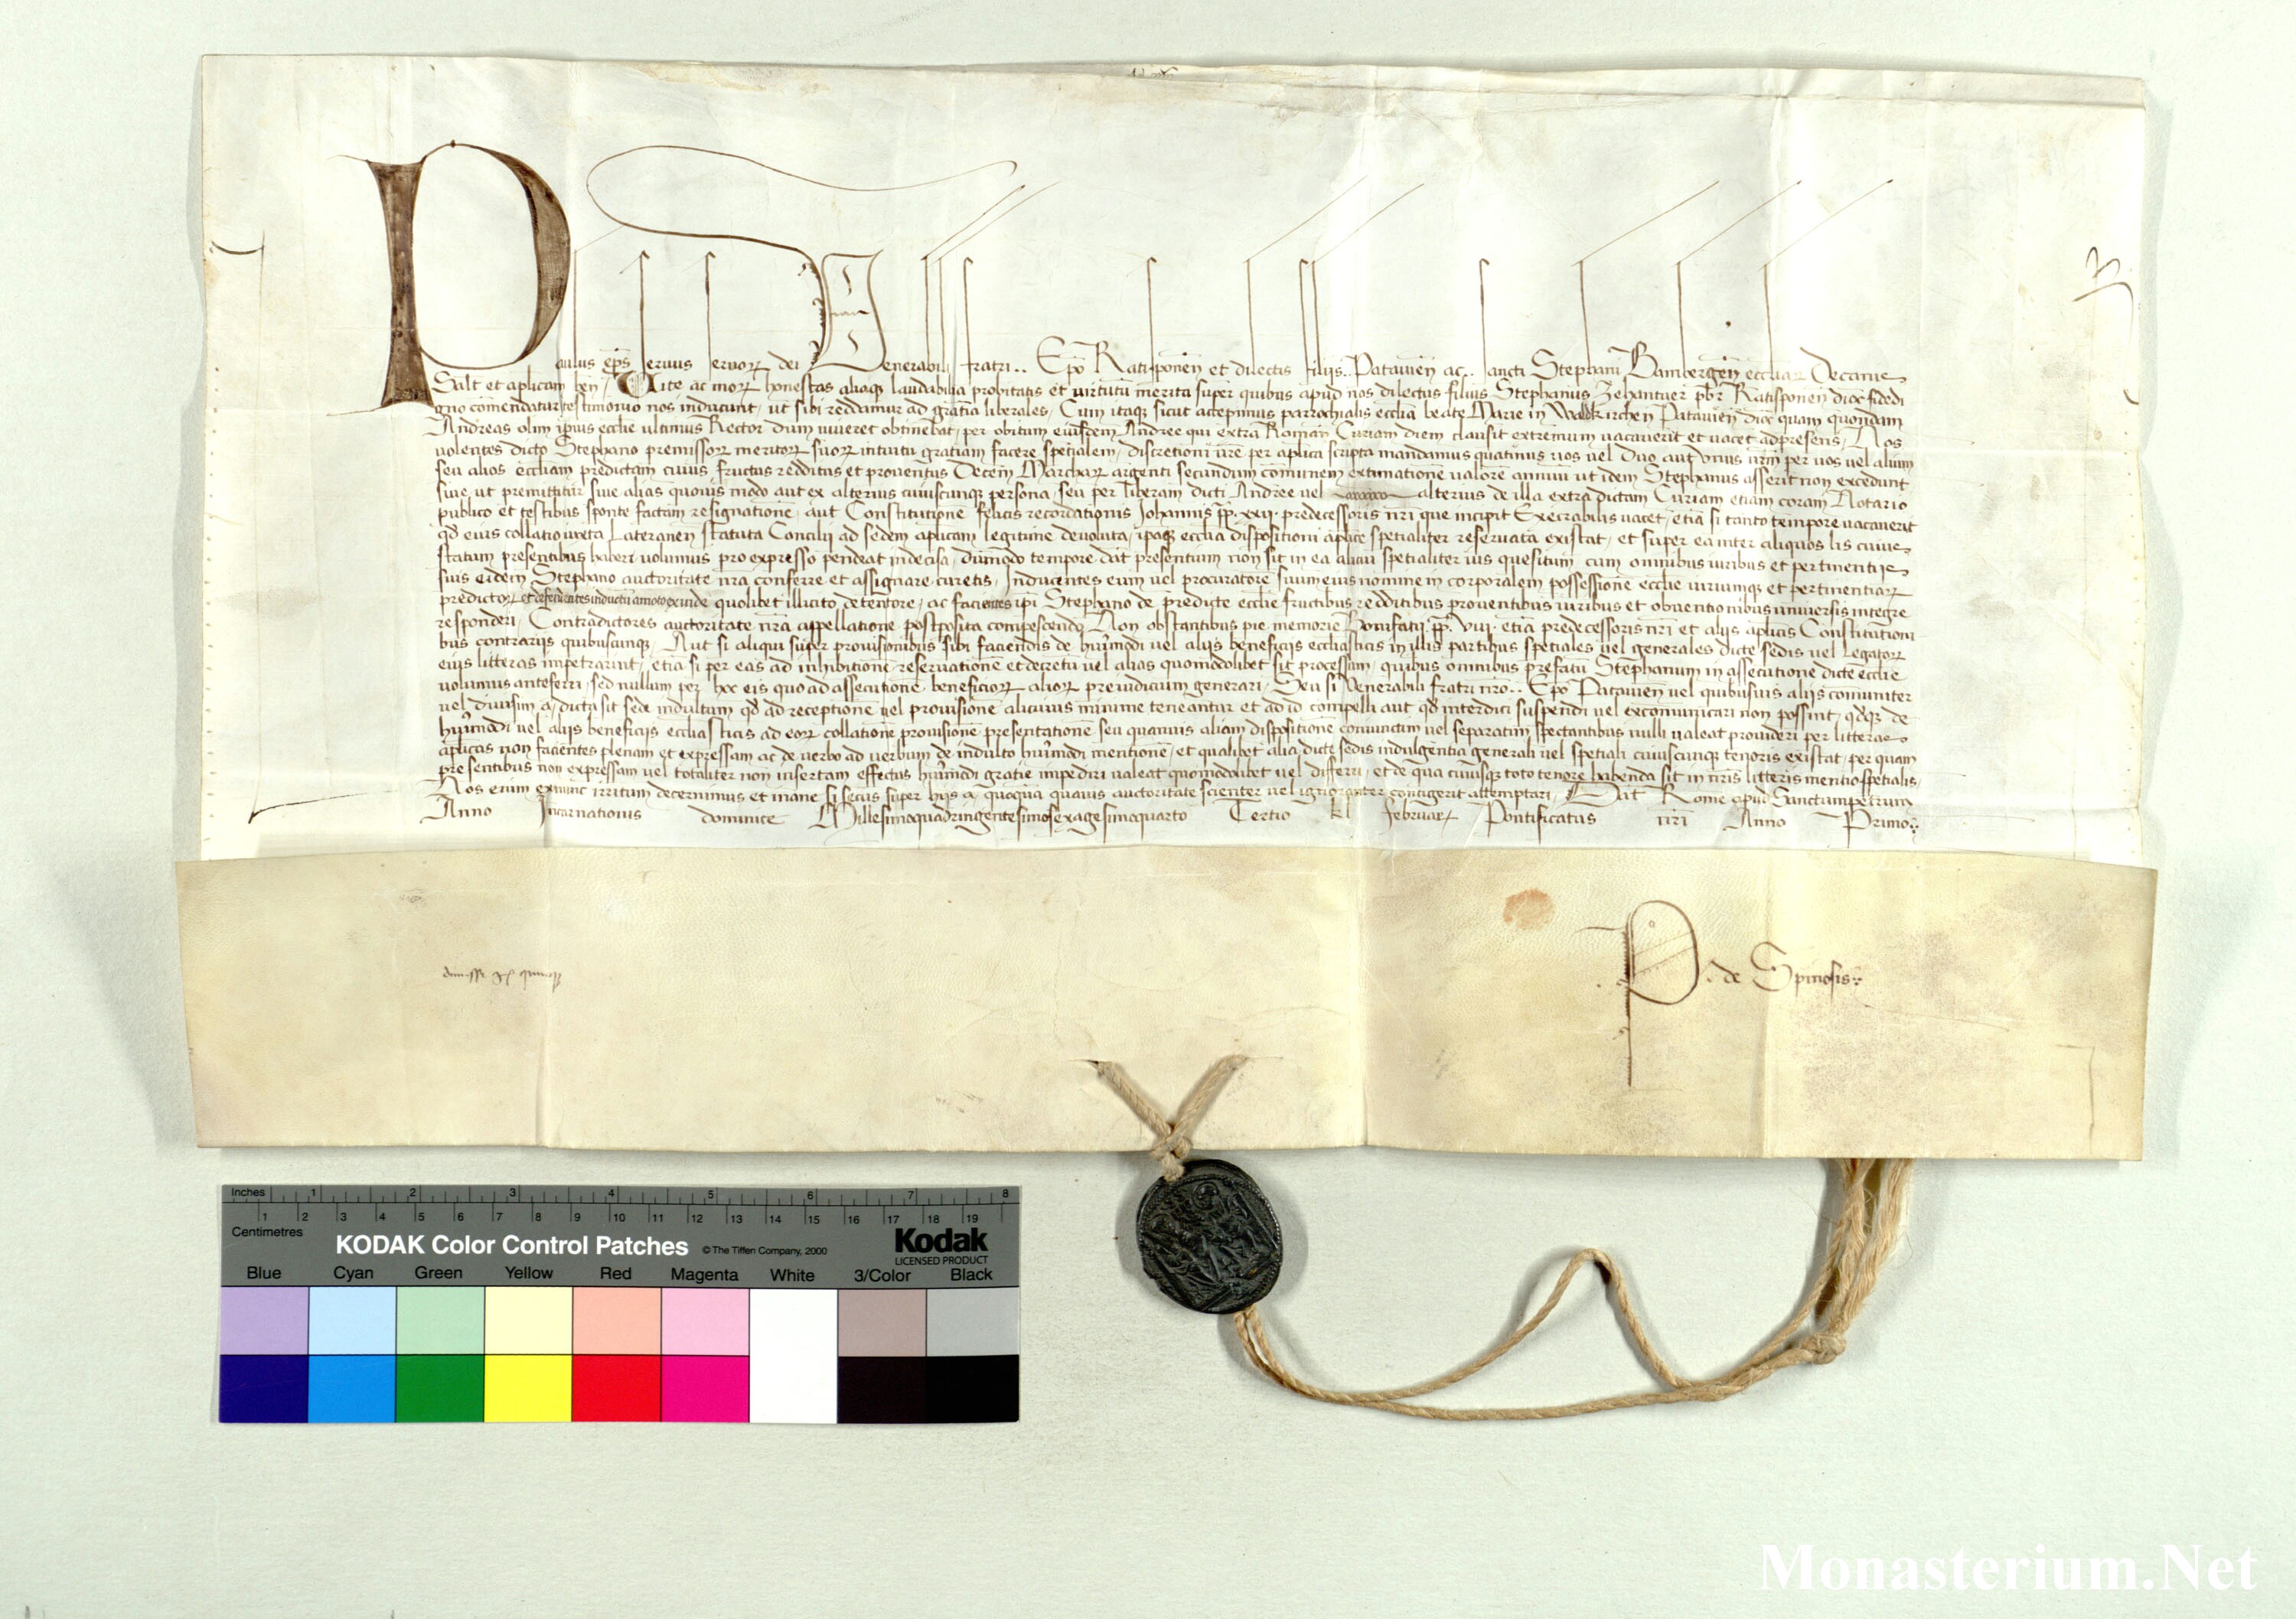 Paulus ep̄s servus servoꝝ dei Venerabili fratri .. Ep̄o Ratisponen̄ et dilectis filijs .. Patavien̄ ac .. sancti Stephani Bambergen̄ eccliaꝝ Decanis
Salt̄ et ap̄licam ben̄. Vite ac moꝝ honestas aliaqꝫ laudabilia probitatis et virtutū merita super quibus apud nos dilectus filius Stephanus Zehantner pb̄r Ratisponen̄ dioc̄ fidedi
gno comendatur testimonio nos inducunt, ut sibi reddamur ad gratiā liberales, Cum itaqꝫ sicut accepimus parrochialis ecclia beate Marie in Waldkirchen Patavien̄ dioc̄ quam quondam
Andreas olim ipius ecclie ultimus Rector dum viveret obtinebat, per obitum eiusdem Andree qui extra Romanā Curiam diem clausit extremum vacaverit et vacet adpresens, Nos
volentes dicto Stephano premissoꝝ meritoꝝ suoꝝ intuitu gratiam facere spetialem, discretioni vr̄e per ap̄lica scripta mandamus quatinus vos vel duo aut unus vrm̄ per vos vel alium
seu alios eccliam predictam cuius fructus redditus et proventus Decem Marchaꝝ argenti secundum cōmunem extimationē valorē annuū ut idem Stephanus asserit non excedunt
sive ut premittitur sive alias quovis modo aut ex alterius cuiuscunqꝫ persona, seu per liberam dicti Andree vel alterius de illa extra dictam Curiam etiam coram Notario
publico et testibus sponte factam resignationē, aut Constitutionē felicis recordationis Johannis pp̄. xxij. predecessoris nr̄i que incipit Execrabilis vacet, etiā si tanto tempore vacaverit
qd̄ eius collatio iuxta Lateranen̄ statuta Concilij ad sedem ap̄licam legitime devoluta, ipaqꝫ ecclia dispositioni ap̄lice spetialiter reservata existat, et super ea inter aliquos lis cuius
statum presentibus haberi volumus pro expresso pendeat indecisa, dummodo tempore dat̄ presentium non sit in ea alicui spetialiter ius quesitum cum omnibus iuribus et pertinentijs
suis eidem Stephano auctoritate nr̄a conferre et assignare curetis, Inducentes eum vel procuratorē suum eius nomine in corporalem possessionē ecclie iuriumqꝫ et pertinentiaꝝ
predictoꝝ et defendentes inductū amoto exinde quolibet illicito detentore, ac facientes ip̄i Stephano de predicte ecclie fructibus redditibus proventibus iuribus et obventionibus universis integre
responderi, Contradictores auctoritate nr̄a appellatione postposita compescendo, Non obstantibus pie memorie Bonifatij pp̄. viij. etiā predecessoris nr̄i et alijs ap̄licis Constitutioni
bus contrarijs quibuscunqꝫ. Aut si aliqui super provisionibus sibi faciendis de huiusmodi vel alijs beneficijs ecclesiasticis in illis partibus spetiales vel generales dicte sedis vel Legatoꝝ
eius litteras impetrarint, etiā si per eas ad inhibitionē reservationē et decretū vel alias quomodolibet sit processum, quibus omnibus prefatū Stephanum in assecutione dicte ecclie
volumus anteferri, sed nullum per hoc eis quo ad assecutionē beneficioꝝ alioꝝ preiudicium generari, Seu si Venerabili fratri nr̄o .. Ep̄o Patavien̄ vel quibusvis alijs comuniter
vel divisim a dicta sit sede indultum qd̄ ad receptionē vel provisionē alicuius minime teneantur et ad id compelli aut qd̄ interdici suspendi vel excomunicari non possint, qd̄qꝫ de
huiusmodi vel alijs beneficijs ecclasticis ad eoꝝ collationē provisionē presentationē seu quamvis aliam dispositionē coniunctim vel separatim spectantibus nulli valeat provideri per litteras
ap̄licas non facientes plenam et expressam ac de verbo ad verbum de indulto huiusmodi mentionē, et qualibet alia dicte sedis indulgentia generali vel spetiali cuiuscunqꝫ tenoris existat, per quam
presentibus non expressam vel totaliter non insertam effectus huiusmodi gratie impediri valeat quomodolibet vel differri, et de qua cuiusqꝫ toto tenore habenda sit in nr̄is litteris mentio spetialis,
Nos enim exnunc irritum decernimus et inane si secus super hijs a quoquā quavis auctoritate scienter vel ignoranter contigerit attemptari, Dat̄ Rome apud Sanctumpetrum
Anno Incarnationis dominice Millesimoquadringentesimosexagesimoquarto Tertio kl̄ februaꝝ Pontificatus nr̄i Anno Primo
P. de Spinosis
Inches 1 2 3 4 5 6 7 8
1 2 3 4 5 6 7 8 9 10 11 12 13 14 15 16 17 18 19
Centimetres
KODAK Color Control Patches © The Tiffen Company, 2000 Kodak
LICENSED PRODUCT
Blue Cyan Green Yellow Red Magenta White 3/Color Black
Monasterium.Net